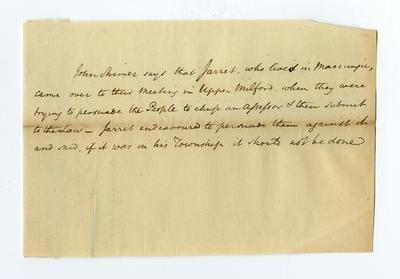 John Shimer says that Jarret, who lived in Maccungie,
came over to their Meeting in Upper Milford, when they were
trying to persuade the People to chuse an Assessor & then submit
to the Law – Jarret endeavoured to persuade them against it
and said, if it was in his Township it should not be done